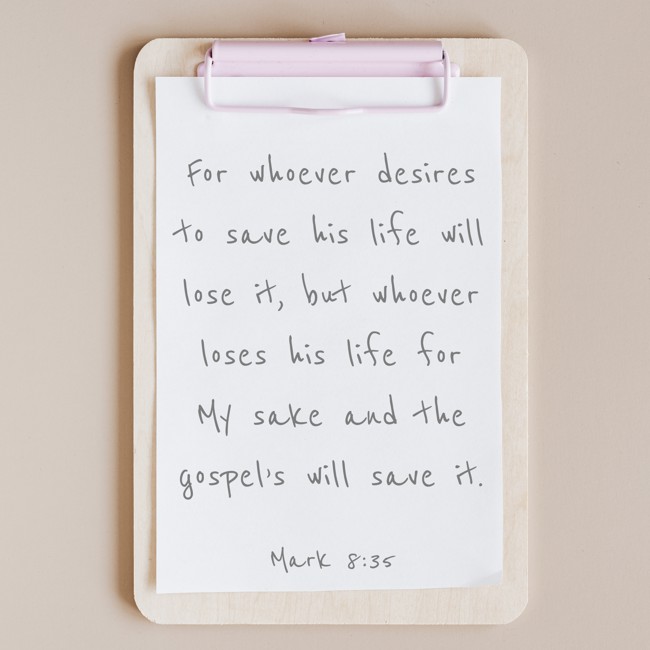 For whoever desires
to save his life will
lose it, but whoever
loses his life for
My sake and the
gospel's will save it.
Mark 8:35